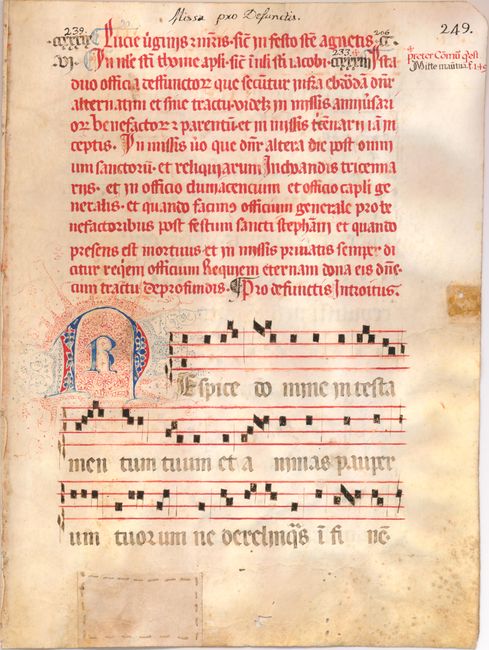 Missa pro Defunctis.
249.
239.
CLXXXI
Lucie v̄gīnis ⁊ m̄ris. sic̄ in festo sc̄e agnetis. G.
206
VI.
In n̄le sc̄i thome ap̄li. sic̄ ī n̄li sc̄i iacobi. CLXXXIII
233.
Ista
preter Com̄u q̄ est
Mitte man̄
149
duo officia deffunctor que secūtur infra
alternatim et sine tractu. videlȝ in missis anniūsari
or benefactor ⁊ parentū. et in missis tcēnarii iā in
ceptis. In missis v̄o que dn̄r altera die post omni
um sanctorū. et reliquiarum. Inchoandis tricenna
riis. et in officio clunacencium et officio capl̄i ge
neralis. et quando facimꝰ officium generale pro be
nefactoribus post festum sancti stephani et quando
presens est mortuus. et in missis priuatis semper di
citur req̄iem officium Requiem eternam dona eis dn̄e.
cum tractu De profundis. ¶ Pro defunctis Introitus.
R
Espice do mine in testa
men tum tuum et a nimas pauper
um tuorum ne derelinq̄s ī fi nē